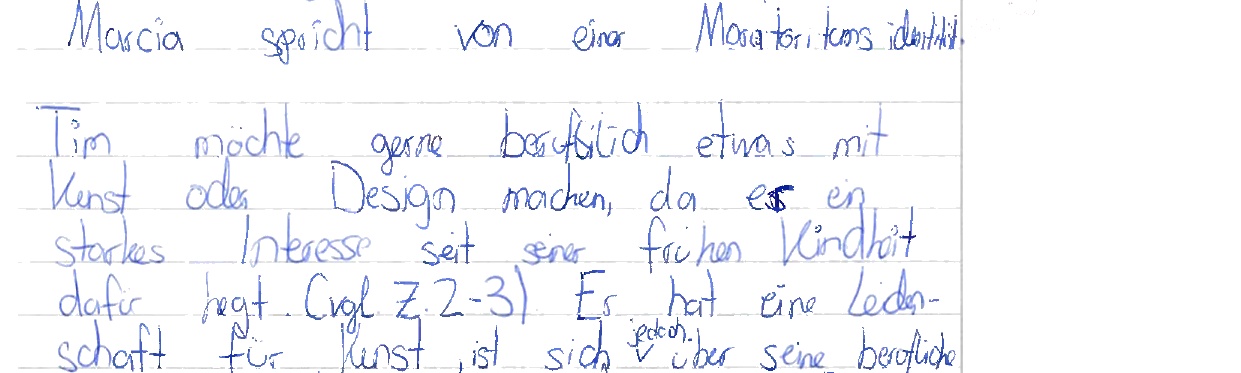 Marcia spricht von einer Moratoriumsidentität.
Tim möchte gerne beruflich etwas mit
Kunst oder Design machen, da er ein
starkes Interesse seit seiner frühen Kindheit
dafür hegt. (vgl Z. 2-3) Es hat eine Leiden-
schaft für Kunst, ist sich jedoch über seine berufliche